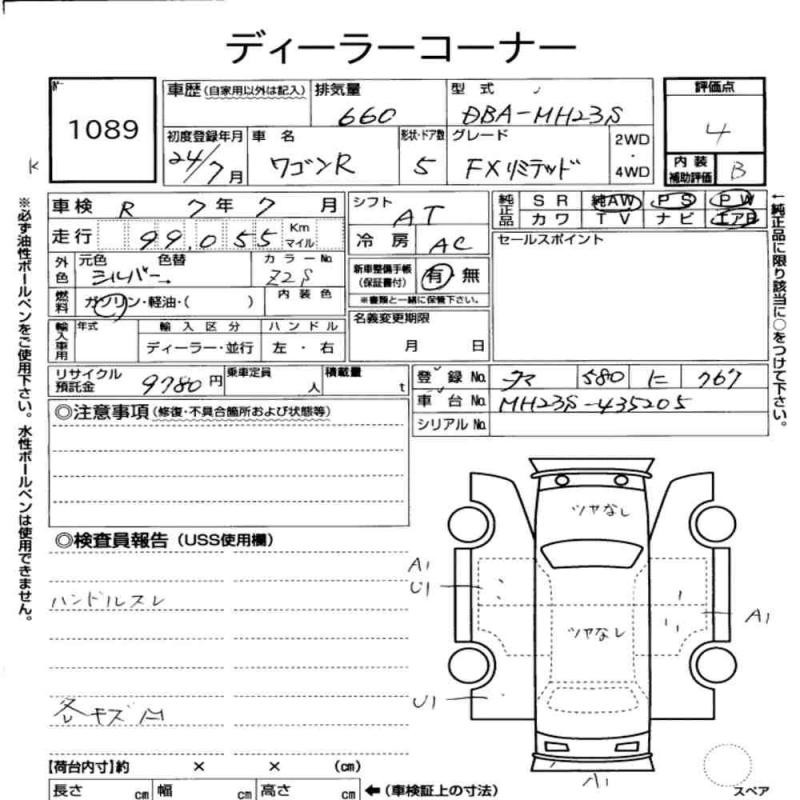 ディーラーコーナー
1089
車歴 (自家用以外は記入) 排気量 型式 評価点
660 DBA-MH23S 4
初度登録年月 車名 形状・ドア数 グレード 2WD・4WD 内装補助評価 B
24/7月 ワゴンR 5 FXリミテッド
K
車検 R 7年7月 シフト AT 純正品 SR 純AW PS PW
カワ TV ナビ エアB
走行 99,055 Km マイル 冷房 AC セールスポイント
外色 元色 色替 カラーNo.
シルバー Z2S 新車整備手帳(保証書付) 有・無
※書類と一緒に保管下さい。
燃料 ガソリン・軽油・( ) 内装色 名義変更期限
月 日
輸入車用 年式 輸入区分 ハンドル
ディーラー・並行 左・右
リサイクル預託金 9780円 乗車定員 人 積載量 t
登録No. タマ 580 に 767
車台No. MH23S-435205
シリアルNo.
◎注意事項(修復・不具合箇所および状態等)
◎検査員報告(USS使用欄)
ハンドルスレ
各キズ
ツヤなし
A1
U1
ツヤなし
A1
U1
A1
スペア
【荷台内寸】約 × × (cm)
長さ cm 幅 cm 高さ cm ←(車検証上の寸法)
※必ず油性ボールペンをご使用下さい。水性ボールペンは使用できません。
←純正品に限り該当に○をつけて下さい。